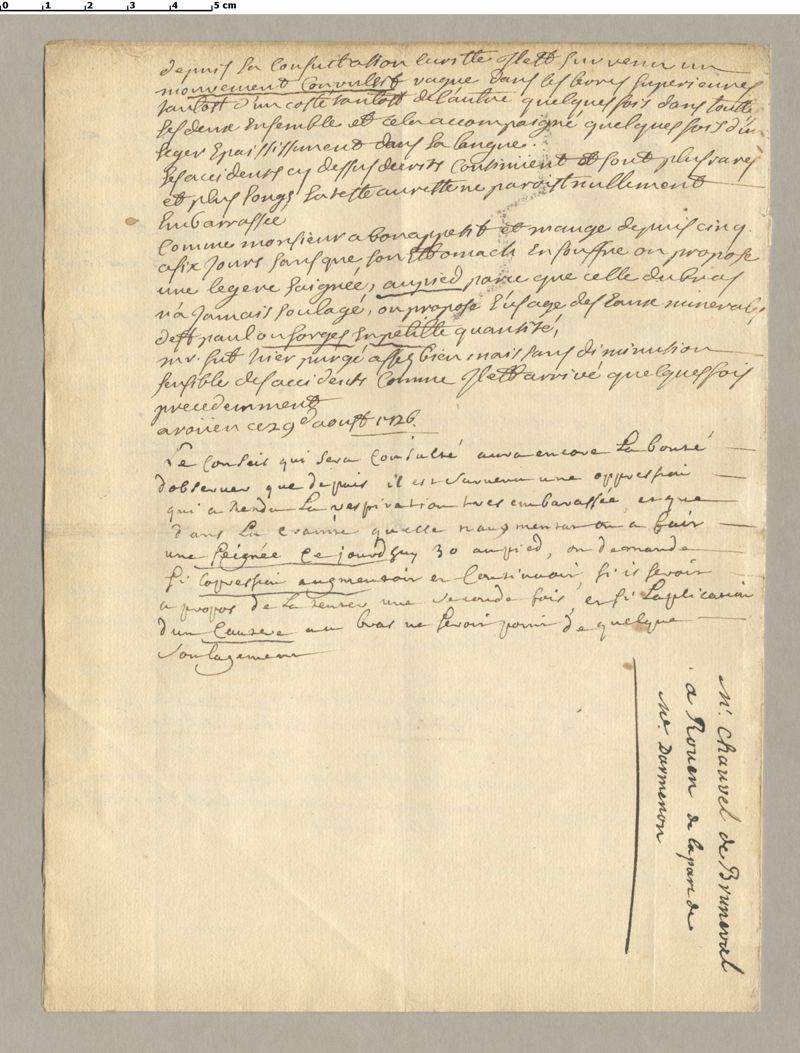 0 1 2 3 4 5 cm
depuis la consultation escritte Il est survenu un
mouvement convulsif vague dans les levres superieures
tantost d'un costé tantost de lautre quelques fois dans toutte
les deux Ensemble et cela accompaigné quelques fois d'un
leger Epaississement dans la langue.
les accidents cy dessus decrits Continüent et sont plus rares
et plus longs la teste au reste ne paroist nullement
Embarrassée
Comme monsieur a bon appetit et mange depuis cinq
a six Jours sans que son Estomach En souffre on propose
une legere saignée, au pied parce que celle du bras
n'a Jamais soulagé, on propose l'usage des Eaux minerales
de st paul ou forges En petitte quantité,
mr. fut hier purgé assez bien mais sans diminution
sensible des accidents Comme Il est arrivé quelques fois
precedemment
a roüen ce 29e aoust 1726.
Le Conseis qui sera Consulté aura encore la bonté
d'observer que depuis il est survenu une oppression
qui a rendu la respiration tres embarassée, et que
dans la crainte quelle n'augmentat on a fait
une seignée ce jourdhuy 30 au pied, on demande
si lopression augmentoit et Continuoit, si il seroit
a propos de la tenter une seconde fois, et si laplication
d'un Cautere au bras ne seroit point de quelque
soulagement
Mr. Chauvel de Bruneval
a Rouen de la part de
Mr. Darmenon